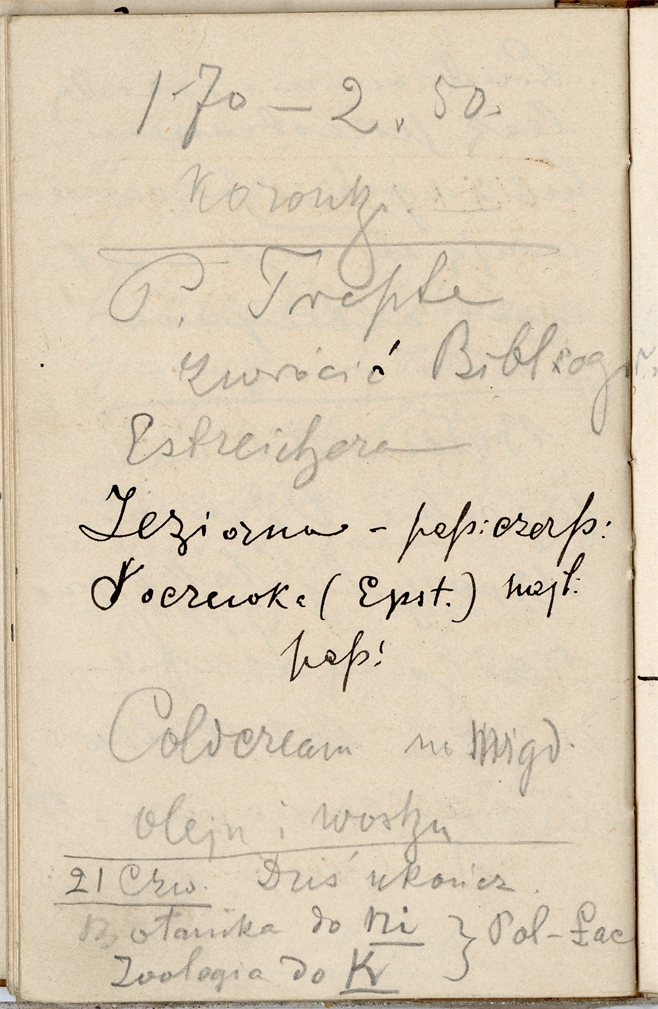 1.70 – 2.50.
Koronk.
P. Trepte
zwrócić Bibliogr.
Estreichera
Jeziorna – pap: czerp:
Soczewka (Epst.) najl.
pap:
Coldcream na Migd.
oleju i wosku
21 Czrw. Dziś ukończ.
Botanika do Ni } Pol-Łac
Zoologia do Kr